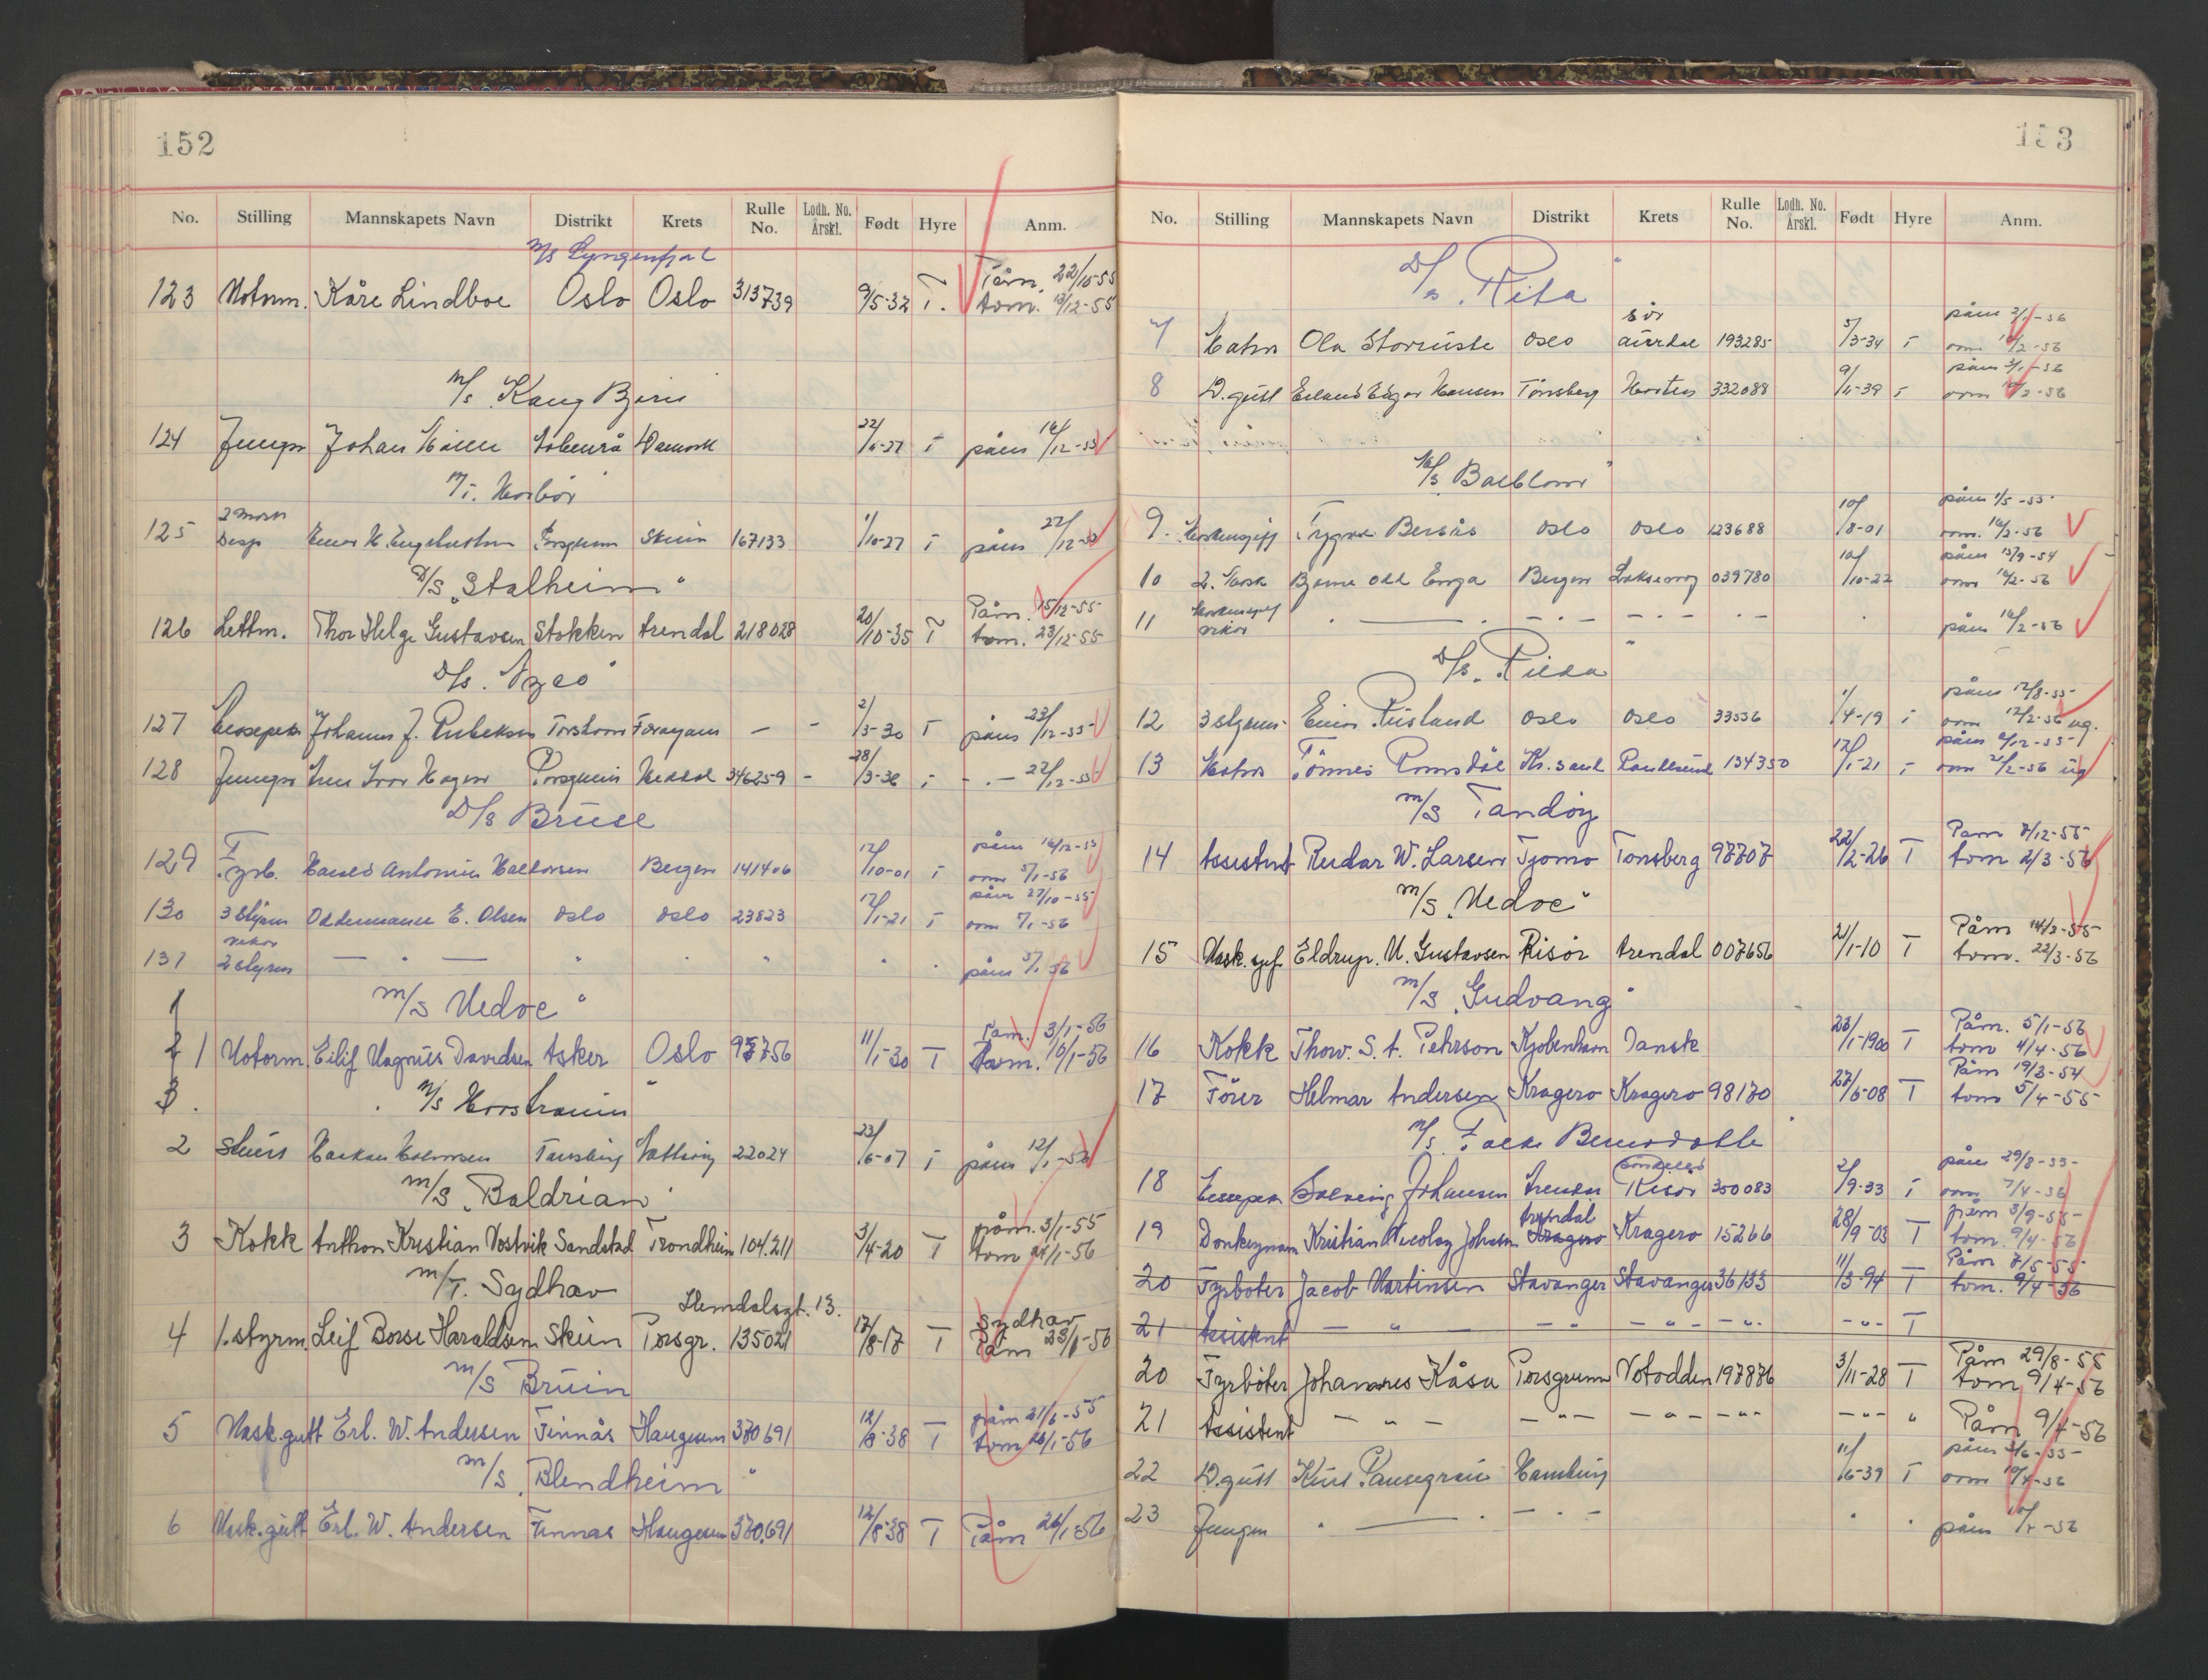 152
No. Stilling Mannskapets Navn Distrikt Krets Rulle No. Lodh. No. Årskl. Født Hyre Anm.
M/s Lyngenfjal
123 Motorm. Kåre Lindboe Oslo Oslo 313739 9/5-32 T. Påm. 22/10-55
tom. 13/12-55
M/s "Kang Bjørn"
124 Jungm Johan Danmark 22/ -27 T påm 16/12-55
M/T. Norbör
125 2 mask
Desp Skien 167133 1/10-27 T påm 22/12-55
D/S "Stalheim"
126 Lettm. Thor Helge Gustavsen Stokken Arendal 218028 20/10-35 T Påm. 15/12-55
tom. 23/12-55
D/s.
127 Johannes J. Torshavn Færøyane — - 2/3-30 T påm 23/12-55
128 Jungm Ivar Hagen Porsgrunn Heddal 346259 - 28/3-36 T - . — 22/12-55
D/s Bruse
129 Fyrb. Harald Antonius Halvorsen Bergen 141406 12/10-01 T påm 16/12-55
om 5/1-56
130 3 styrm Oddemann E. Olsen Oslo Oslo 23823 12/1-21 T påm 27/10-55
om 5/1-56
131 2 styrm — " — " " " " påm 5/1 56
1 M/s Vedoe"
2 1 Motorm. Eilif Magnus Davidsen Asker Oslo 97756 11/1-30 T Påm. 3/1-56
tom. 10/1-56
3. M/s
2 Stuert Haakon Halvorsen Tønsberg Nøtterøy 22024 23/6-07 T påm 12/1-56
M/s. "Baldrian"
3 Kokk Anthon Kristian Vostvik Sandstad Trondheim 104.211 3/4-20 T påm. 3/1-55
tom 24/1-56
M/T. Sydhav
Hemdalsgt. 13.
4 1. styrm Leif Børse Haraldsen Skien Porsgr. 135021 17/8-17 T Sydhav
Påm 23/1-56
M/s Bruin
5 Mask.gutt Erl. W. Andersen Finnås Haugesun 370691 12/8-38 T påm 21/6-55
tom 26/1-56
M/s "Blendheim"
6 Mask.gutt Erl. W. Andersen Finnas Haugesun 370.691 12/8-38 T Påm 26/1-56
153
No. Stilling Mannskapets Navn Distrikt Krets Rulle No. Lodh. No. Årskl. Født Hyre Anm.
D/s "Rita"
7 Matros Ola Storruste Oslo Sør
Aurdal 193285 5/3-34 T påm 3/1-56
om 10/2-56
8 D.gutt Erland Edgar Hansen Tønsberg Horten 332088 9/11-39 T påm 3/1-56
om 10/2-56
M/s "Balblom"
9. Maskinsjef Trygve Bersås Oslo Oslo 123688 10/8-01 påm 1/5-55
om. 16/2-56
10 2. Mask Bjarne Odd Enga Bergen Laksevåg 039780 10/10-22 påm 15/9-54
om 16/2-56
11 Maskinsjef
vikar . — . - . - - . - . - . - . påm 16/2-56
D/s. "
12 3 styrm. Einar Rusland Oslo Oslo 33536 1/4-19 T påm 12/8-55
om 12/2-56 ug.
13 Matros Tønnes Romsdal Kr.sand Randesund 134350 12/1-21 T påm 6/12-55
om 21/2-56 ug
M/s Tandöy
14 Assistent Reidar W. Larsen Tjomo Tonsberg 97707 22/2-26 T Påm 7/12-55
tom 2/3-56
M/s "Vedoe"
15 Mask.sjef Eldrup. M. Gustavsen Risör Arendal 007656 21/1-10 T Påm 14/3-55
tom. 22/3-56
M/s "Gudvang"
16 Kokk Thorv. S. A. Pehrson Kjobenhavn Dansk 23/1-1900 T Påm. 5/1-56
tom 4/4-56
17 Förer Helmar Andersen Kragero Kragero 98170 27/6-08 T Påm 19/3-54
tom 5/4-55
M/s. "Folke Bernadotte"
18 Solveig Johansen Arendal Søndeled
Risør 350083 2/9-33 T påm 29/8-55
om 7/4-56
19 Donkeyman Kristian Nicolay Johnsen Arendal
Kragero Kragero 15266 28/9-03 T påm 3/9-55
tom. 9/4-56
20 Fyrböter Jacob Martinsen Stavanger Stavanger 36133 11/3-94 T Påm 7/5-55
tom. 9/4-56
21 Assistent — " — - " - " - - " - - " - T
20 Fyrböter Johannes Kåsa Porsgrunn Notodden 197876 3/11-28 T Påm 29/8-55
tom 9/4-56
21 Assistent - " - - " - - " - - " - - " - " Påm 9/4-56
22 D.gutt Hamburg 11/6-39 T påm 3/6-55
om 10/4-56
23 Jungm . — . - . - . . påm 10/4-56